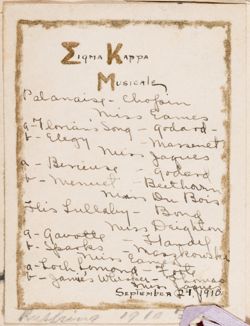 Sigma Kappa
Musicale
Polanaise - Chopin
Miss Eames
a - Florian's Song - Godard -
b - Elegy - Massenet
Miss Jaques
a - Berceuse - Godard
b - Menuet - Beethoven
Miss Du Bois
His Lullaby - Bond
Miss Deighton
a - Gavotte - Handel
b - Sparks - Moszkowski
Miss Eames
a - Loch Lomond -
b -
Miss Jaques
September 29, 1910.
1910